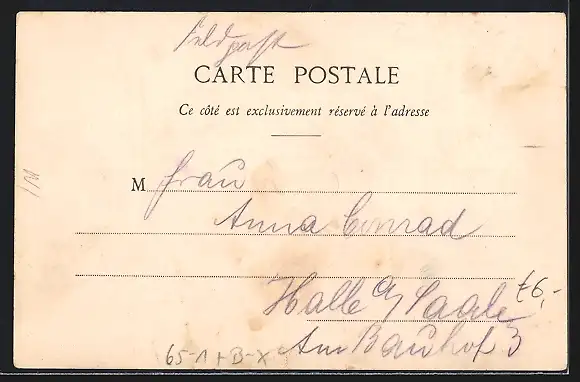 Feldpost
CARTE POSTALE
Ce côté est exclusivement réservé à l'adresse
M Frau
Anna Conrad
Halle a/Saale
Am Bauhof 3
£6,-
65-1+B-X